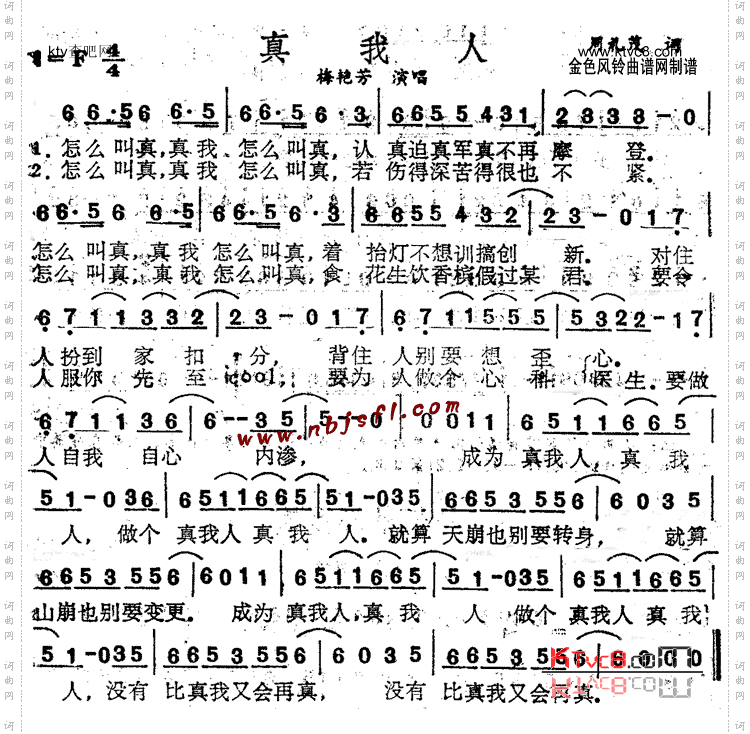 1=F 4/4
ktv查吧网
真我人
www.ktvc8.com
梅艳芳 演唱
金色风铃曲谱网制谱
6 6·5 6 6·5 6·5 6 6·3 6 6 5 5 4 3 1 2 3 3 3 - 0
1. 怎么叫真,真我 怎么叫真,认 真迫真军真不再 摩 登.
2. 怎么叫真,真我 怎么叫真,若 伤得深苦得很也 不 紧.
6 6·5 6 6·5 6·5 6 6·3 6 6 5 5 4 3 2 2 3 - 0 1 7
怎么叫真,真我 怎么叫真,着 抬灯不想训搞创 新. 对住
怎么叫真,真我 怎么叫真,食 花生饮香槟假过某 君. 要令
6 7 1 1 3 3 2 2 3 - 0 1 7 6 7 1 1 5 5 5 5 3 2 2 - 1 7
人扮到 家 扣 分, 背住 人别要 想 歪 心.
人服你 先 至 cool; 要为 人做个 心 科 医生.要做
6 7 1 1 3 6 6 - - 3 5 5 - - 0 0 0 1 1 6 5 1 1 6 6 5
www.nbjsfl.com
人自我 自心 内渗, 成为 真我人,真 我
5 1 - 0 3 6 6 5 1 1 6 6 5 5 1 - 0 3 5 6 6 5 3 5 5 6 6 0 3 5
人, 做个 真我人真我 人. 就算 天崩也别要转身, 就算
6 6 5 3 5 5 6 6 0 1 1 6 5 1 1 6 6 5 5 1 - 0 3 5 6 5 1 1 6 6 5
山崩也别要变更. 成为 真我人,真 我 人 做个 真我人真我
5 1 - 0 3 5 6 6 5 3 5 5 6 6 0 3 5 6 6 5 3 5 5 6 6 0 0 0
人, 没有 比真我又会再真, 没有 比真我又会再真.
KTVC8.COM
词曲网